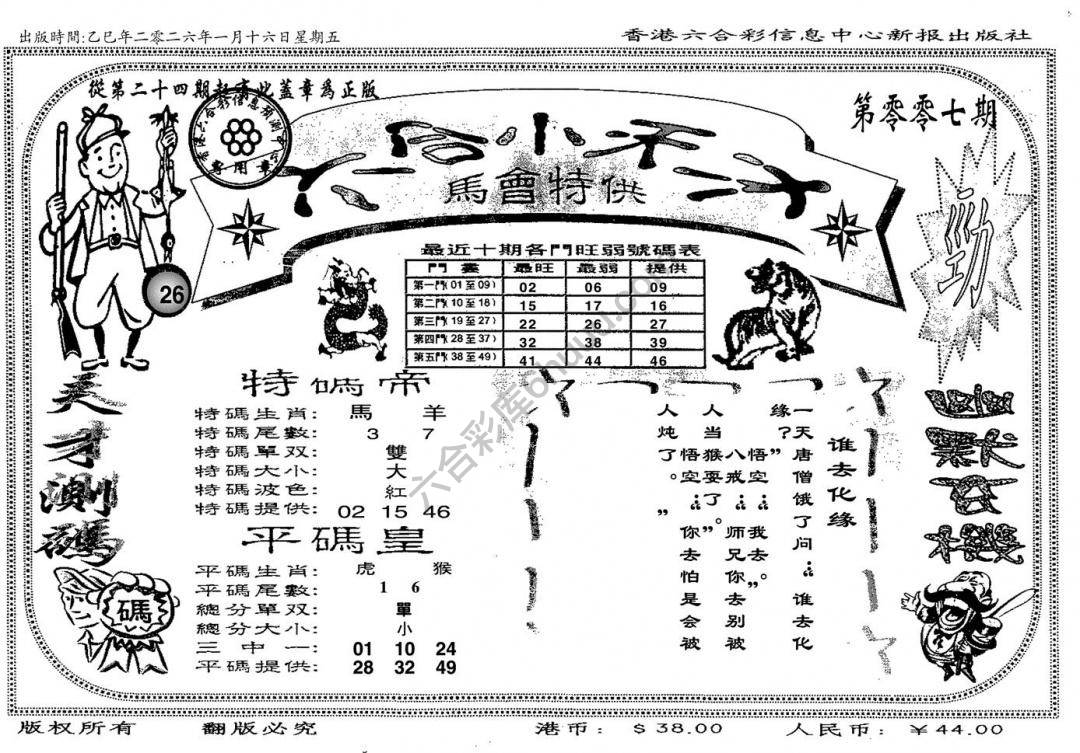 出版時間:乙巳年二零二六年一月十六日星期五
香港六合彩信息中心新报出版社
從第二十四期起有此蓋章為正版
第零零七期
專用章
六合小禾
馬會特供
勁
26
最近十期各門旺弱號碼表
門 最旺 最弱 提供
第一門(01至09) 02 06 09
第二門(10至18) 15 17 16
第三門(19至27) 22 26 27
第四門(28至37) 32 38 39
第五門(38至49) 41 44 46
天才測碼
特碼帝
特碼生肖: 馬 羊
特碼尾數: 3 7
特碼單双: 雙
特碼大小: 大
特碼波色: 紅
特碼提供: 02 15 46
平碼皇
平碼生肖: 虎 猴
平碼尾數: 1 6
總分單双: 單
總分大小: 小
三中一: 01 10 24
平碼提供: 28 32 49
碼
谁去化缘
一天唐僧饿了问:“谁去化
缘?”悟空:“我去。”
八戒:“师兄你去别被
人当猴耍了。”
悟空:“你去怕是会被
人炖了。”
六合彩库6huuu.com
版权所有
翻版必究
港币: $38.00
人民币: ¥44.00